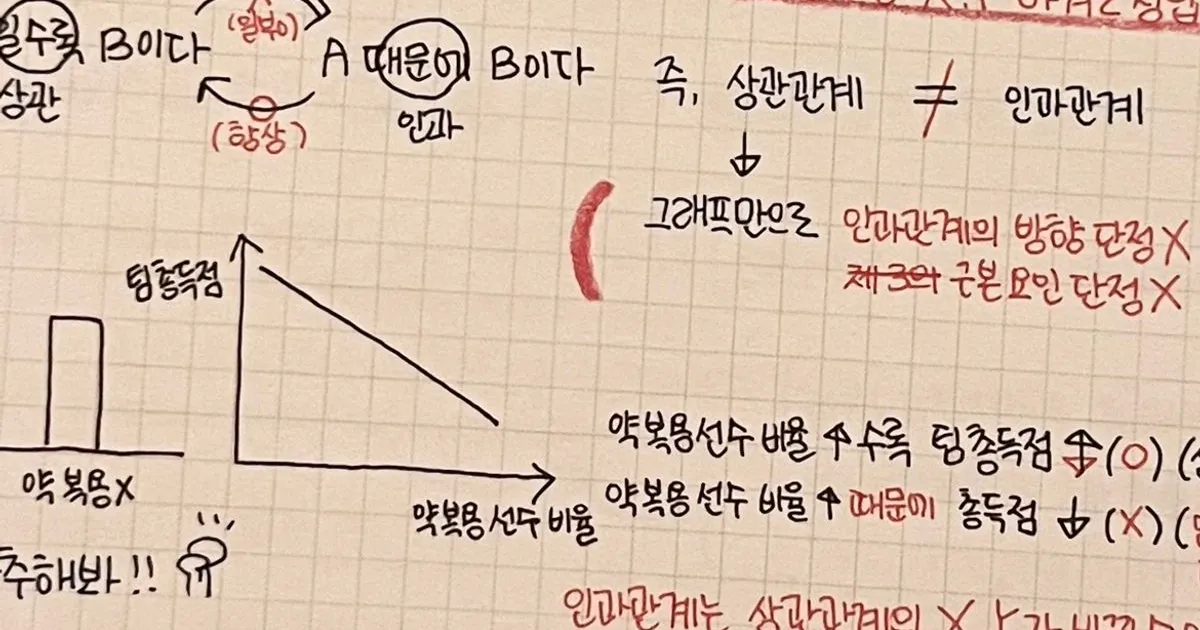 일수록 B이다
상관
(일부이)
A 때문에 B이다
인과
(항상)
즉, 상관관계 ≠ 인과관계
↓
그래프만으로 인과관계의 방향 단정 X
제 3의 근본요인 단정 X
팀총득점
약복용선수 비율
약 복용X
약복용선수 비율 ↑ 수록 팀총득점 ↓ (O) (
약복용선수 비율 ↑ 때문에 총득점 ↓ (X) (
추해봐!!
인과관계는 상관관계의